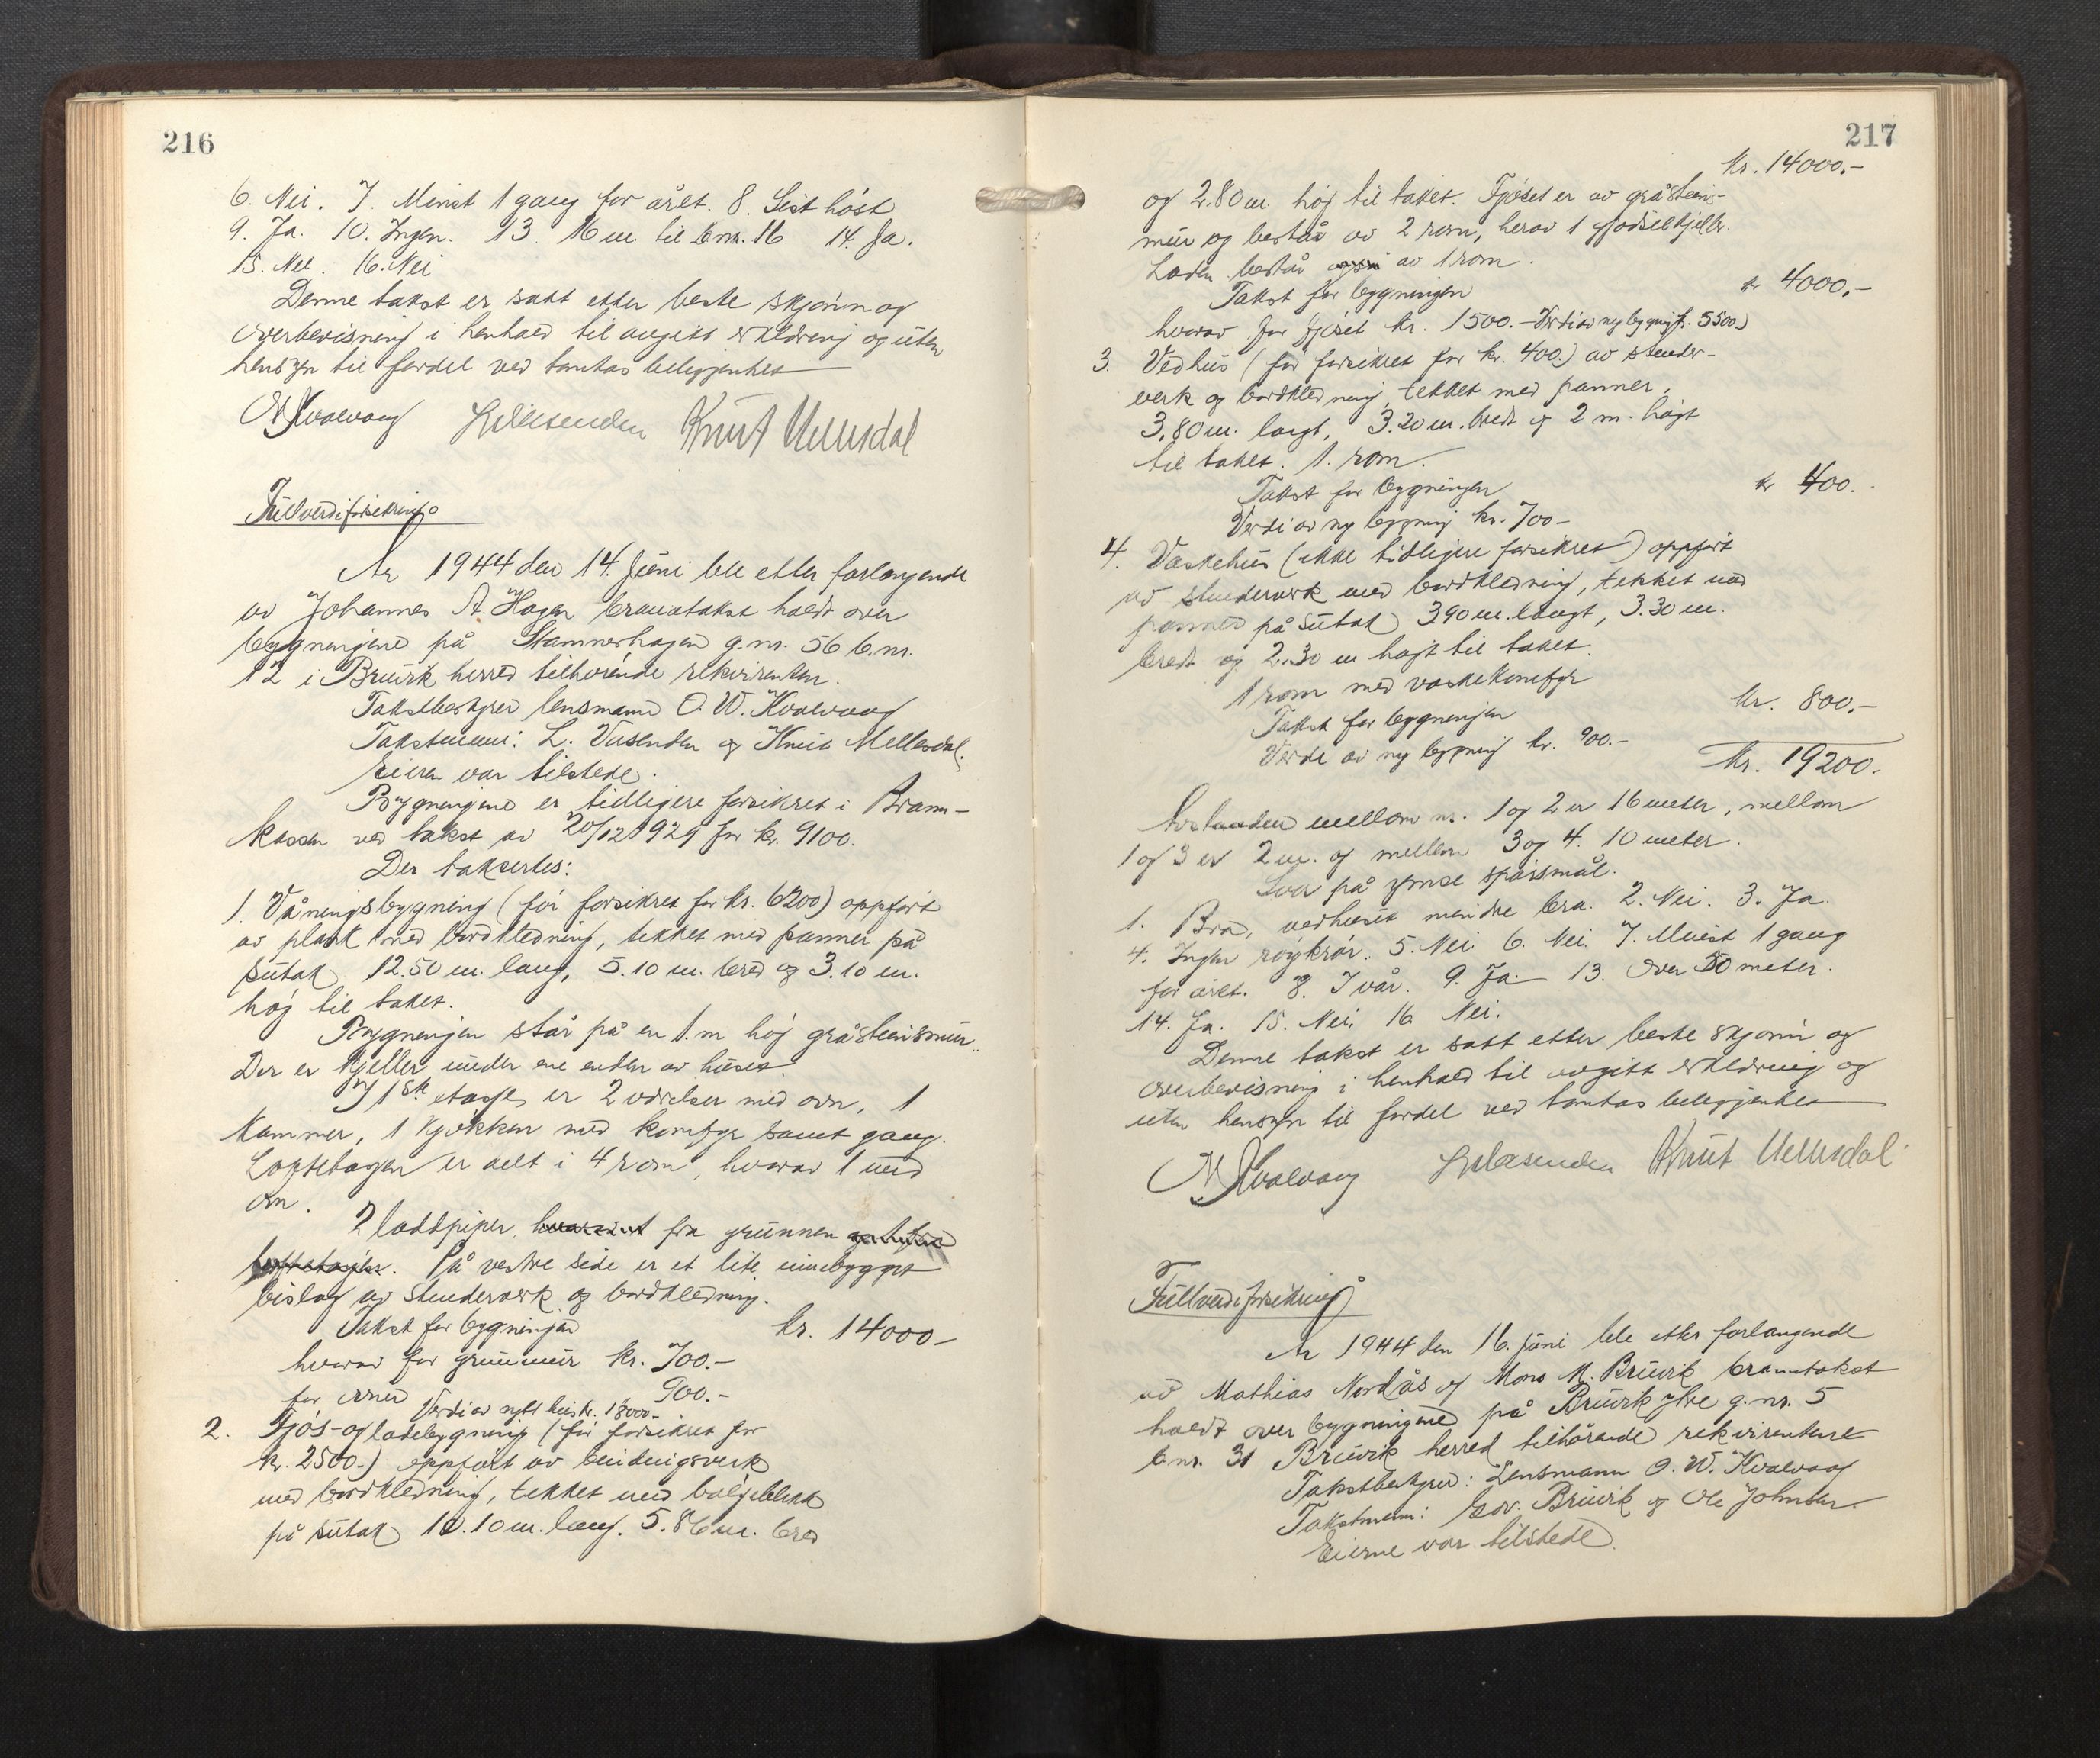 216
6. Nei. 7. Minst 1 gang for året. 8. Sist høst
9. Ja. 10. Ingen. 13. 16 m. til b.nr. 16 14. Ja.
15. Nei. 16. Nei
Denne takst er satt etter beste skjønn og
overbevisning i henhold til avgitt erklæring og uten
hensyn til fordel ved tomtas beliggenhet
O W Kvalvaag L Vasenden Knut Mellesdal
Fullverdiforsikring.
År 1944 den 14. juni ble etter forlangende
av Johannes A. Hagen branntakst holdt over
bygningene på Stamnerhagen g.nr. 56 b.nr.
12 i Bruvik herred tilhørende rekvirenten.
Takstbestyrer lensmann O. W. Kvalvaag
Takstmenn: L. Vasenden og Knut Mellesdal.
Eieren var tilstede.
Bygningene er tidligere forsikret i Brann-
kassen ved takst av 20/12 1929 for kr. 9100.
Der taksertes:
1. Våningsbygning (før forsikret for kr. 6200) oppført
av plank med bordkledning, tekket med panner på
sutak 12.50 m. lang, 5.10 m. bred og 3.10 m.
høg til taket.
Bygningen står på en 1 m høg gråsteinsmur.
Der er kjeller under ene enden av huset.
I 1ste etasje er 2 værelser med ovn, 1
kammer, 1 kjøkken med komfyr samt gang.
Loftetagen er delt i 4 rom, hvorav 1 med
ovn.
2 loddpiper, hvorav fra grunnen
. På vestre side er et lite innebygget
bislag av stenderverk og bordkledning.
Takst for bygningen kr. 14000-
hvorav for grunnmur kr. 700.-
for ovner 900.-
Verdi av nytt hus kr. 18000-
2. Fjøs- og ladebygning (før forsikret for
kr. 2500.-) oppført av bindingsverk
med bordkledning, tekket med bølgeblikk
på sutak 10.10 m. lang. 5.86 m. bred
217
kr. 14000.-
og 2.80 m. høg til taket. Fjøset er av gråsteins-
mur og består av 2 rom, herav 1 gjødselkjeller.
Laden består av 1 rom.
Takst for bygningen kr 4000.-
hvorav for fjøset kr. 1500.- Verdi av ny bygning kr. 5500.)
3. Vedhus (før forsikret for kr. 400.) av stender-
verk og bordkledning, tekket med panner,
3.80 m. langt, 3.20 m. bredt og 2 m. høgt
til taket. 1. rom.
Takst for bygningen kr 400.
Verdi av ny bygning kr. 700-
4. Vaskehus (ikke tidligere forsikret) oppført
av stenderverk med bordkledning, tekket med
panner på sutak 3.90 m. langt, 3.30 m.
bredt og 2.30 m høgt til taket.
1 rom med vaskekomfyr
Takst for bygningen kr. 800.-
Verdi av ny bygning kr. 900.-
kr. 19200.
Avstanden mellom nr. 1 og 2 er 16 meter, mellom
1 og 3 er 2 m. og mellom 3 og 4. 10 meter.
Svar på ymse spørsmål.
1. Bra, vedhuset mindre bra. 2. Nei. 3. Ja.
4. Ingen røykrør. 5. Nei. 6. Nei. 7. Minst 1 gang
for året. 8. I vår. 9. Ja. 13. Over 50 meter.
14. Ja. 15. Nei. 16 Nei.
Denne takst er satt etter beste skjønn og
overbevisning i henhold til avgitt erklæring og
uten hensyn til fordel ved tomtas beliggenhet
O W Kvalvaag L Vasenden Knut Mellesdal
Fullverdiforsikring
År 1944 den 16. juni ble etter forlangende
av Mathias Nordås og Mons M. Bruvik branntakst
holdt over bygningene på Bruvik ytre g.nr. 5
b.nr. 31 Bruvik herred tilhørende rekvirentene
Takstbestyrer: Lensmann O. W. Kvalvaag
Takstmenn: Edv. Bruvik og Ole Johnsen.
Eierne var tilstede.